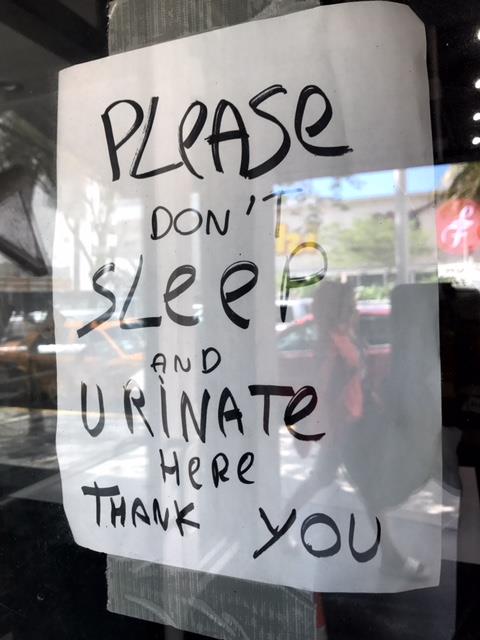 PLeASe
DON'T
SLeeP
AND
URiNATe
HeRe
THANK YOU